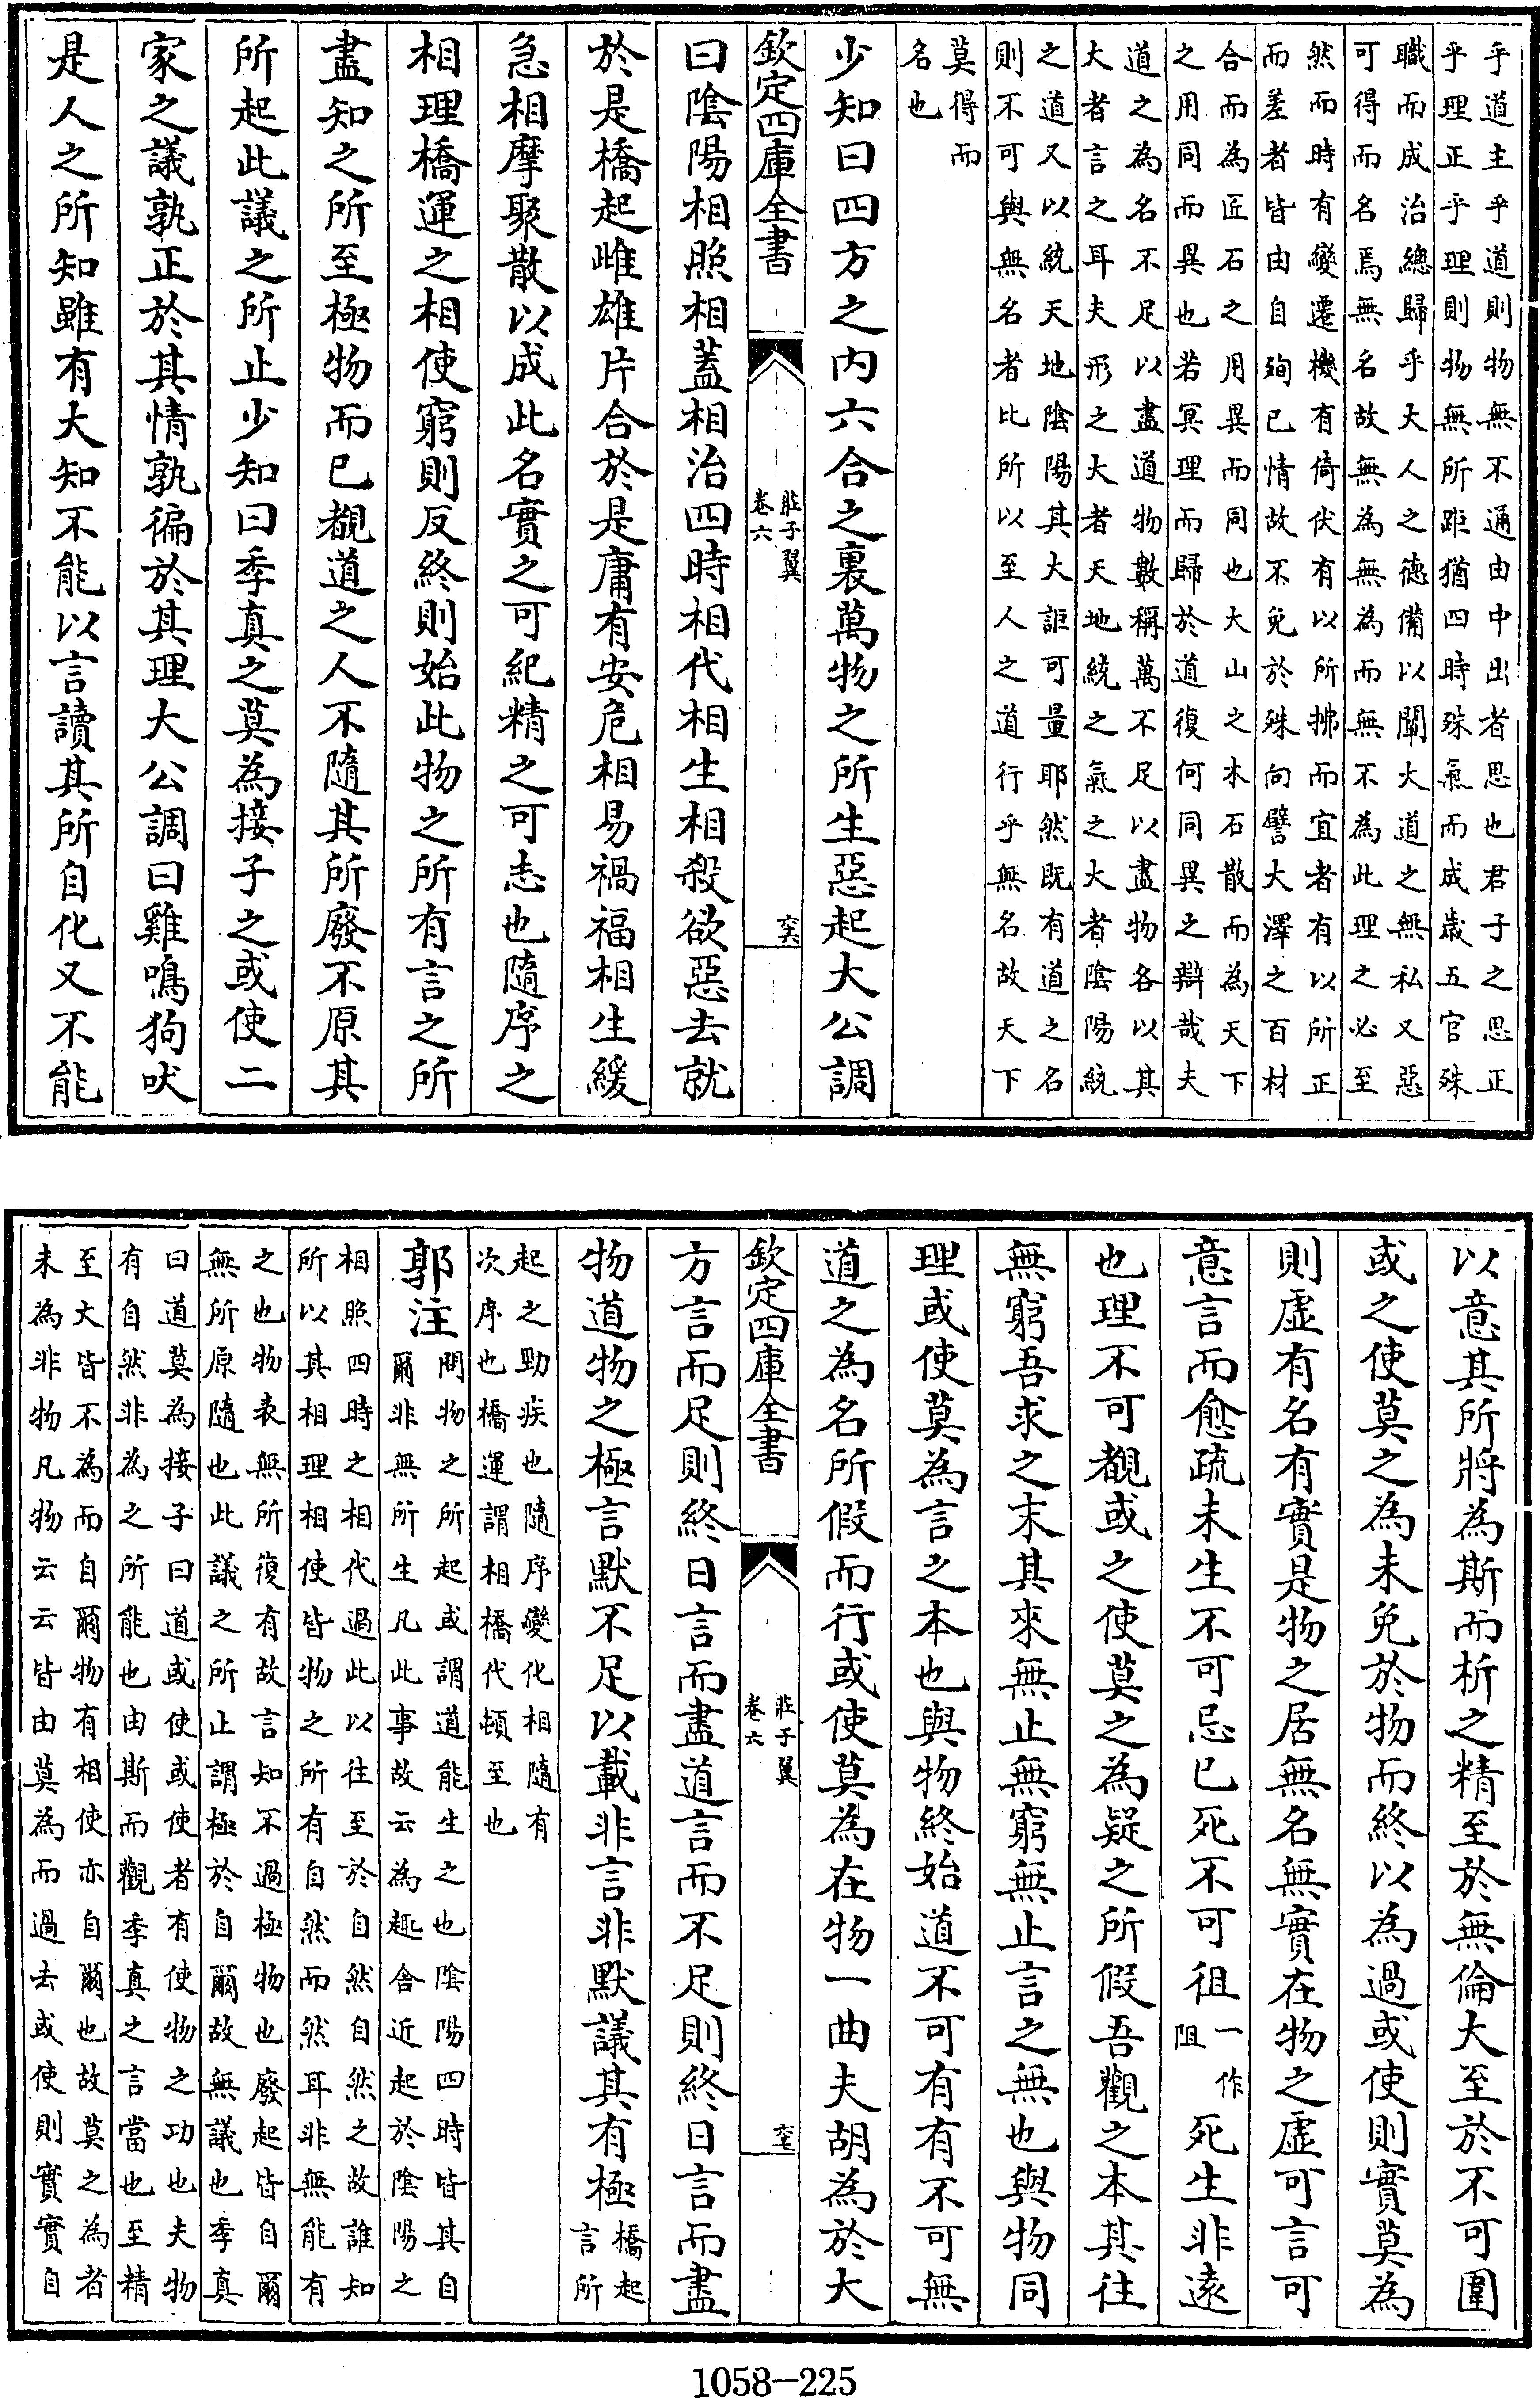 乎道主乎道則物無不通由中出者思也君子之思正
乎理正乎理則物無所距猶四時殊氣而成歲五官殊
職而成治總歸乎大人之德備以闡大道之無私又惡
可得而名焉無名故無為無為而無不為此理之必至
然而時有變遷機有倚伏有以所拂而宜者有以所正
而差者皆由自殉已情故不免於殊向譬大澤之百材
合而為匠石之用異而同也大山之木石散而為天下
之用同而異也若冥理而歸於道復何同異之辯哉夫
道之為名不足以盡道物數稱萬不足以盡物各以其
大者言之耳夫形之大者天地統之氣之大者陰陽統
之道又以統天地陰陽其大詎可量耶然既有道之名
則不可與無名者比所以至人之道行乎無名故天下
莫得而
名也
少知曰四方之內六合之裏萬物之所生惡起大公調
欽定四庫全書
莊子翼
卷六
六六
曰陰陽相照相蓋相治四時相代相生相殺欲惡去就
於是橋起雌雄片合於是庸有安危相易禍福相生緩
急相摩聚散以成此名實之可紀精之可志也隨序之
相理橋運之相使窮則反終則始此物之所有言之所
盡知之所至極物而已覩道之人不隨其所廢不原其
所起此議之所止少知曰季真之莫為接子之或使二
家之議孰正於其情孰徧於其理大公調曰雞鳴狗吠
是人之所知雖有大知不能以言讀其所自化又不能
以意其所將為斯而析之精至於無倫大至於不可圍
或之使莫之為未免於物而終以為過或使則實莫為
則虛有名有實是物之居無名無實在物之虛可言可
意言而愈疏未生不可忌已死不可徂一作阻死生非遠
也理不可覩或之使莫之為疑之所假吾觀之本其往
無窮吾求之末其來無止無窮無止言之無也與物同
理或使莫為言之本也與物終始道不可有有不可無
道之為名所假而行或使莫為在物一曲夫胡為於大
欽定四庫全書
莊子翼
卷六
六七
方言而足則終日言而盡道言而不足則終日言而盡
物道物之極言默不足以載非言非默議其有極橋起言所
起之勁疾也隨序變化相隨有
次序也橋運謂相橋代頓至也
郭注問物之所起或謂道能生之也陰陽四時皆其自
爾非無所生凡此事故云為趣舍近起於陰陽之
相照四時之相代過此以往至於自然自然之故誰知
所以其相理相使皆物之所有自然而然耳非無能有
之也物表無所復有故言知不過極物也廢起皆自爾
無所原隨也此議之所止謂極於自爾故無議也季真
曰道莫為接子曰道或使或使者有使物之功也夫物
有自然非為之所能也由斯而觀季真之言當也至精
至大皆不為而自爾物有相使亦自爾也故莫之為者
未為非物凡物云云皆由莫為而過去或使則實實自
1058-225